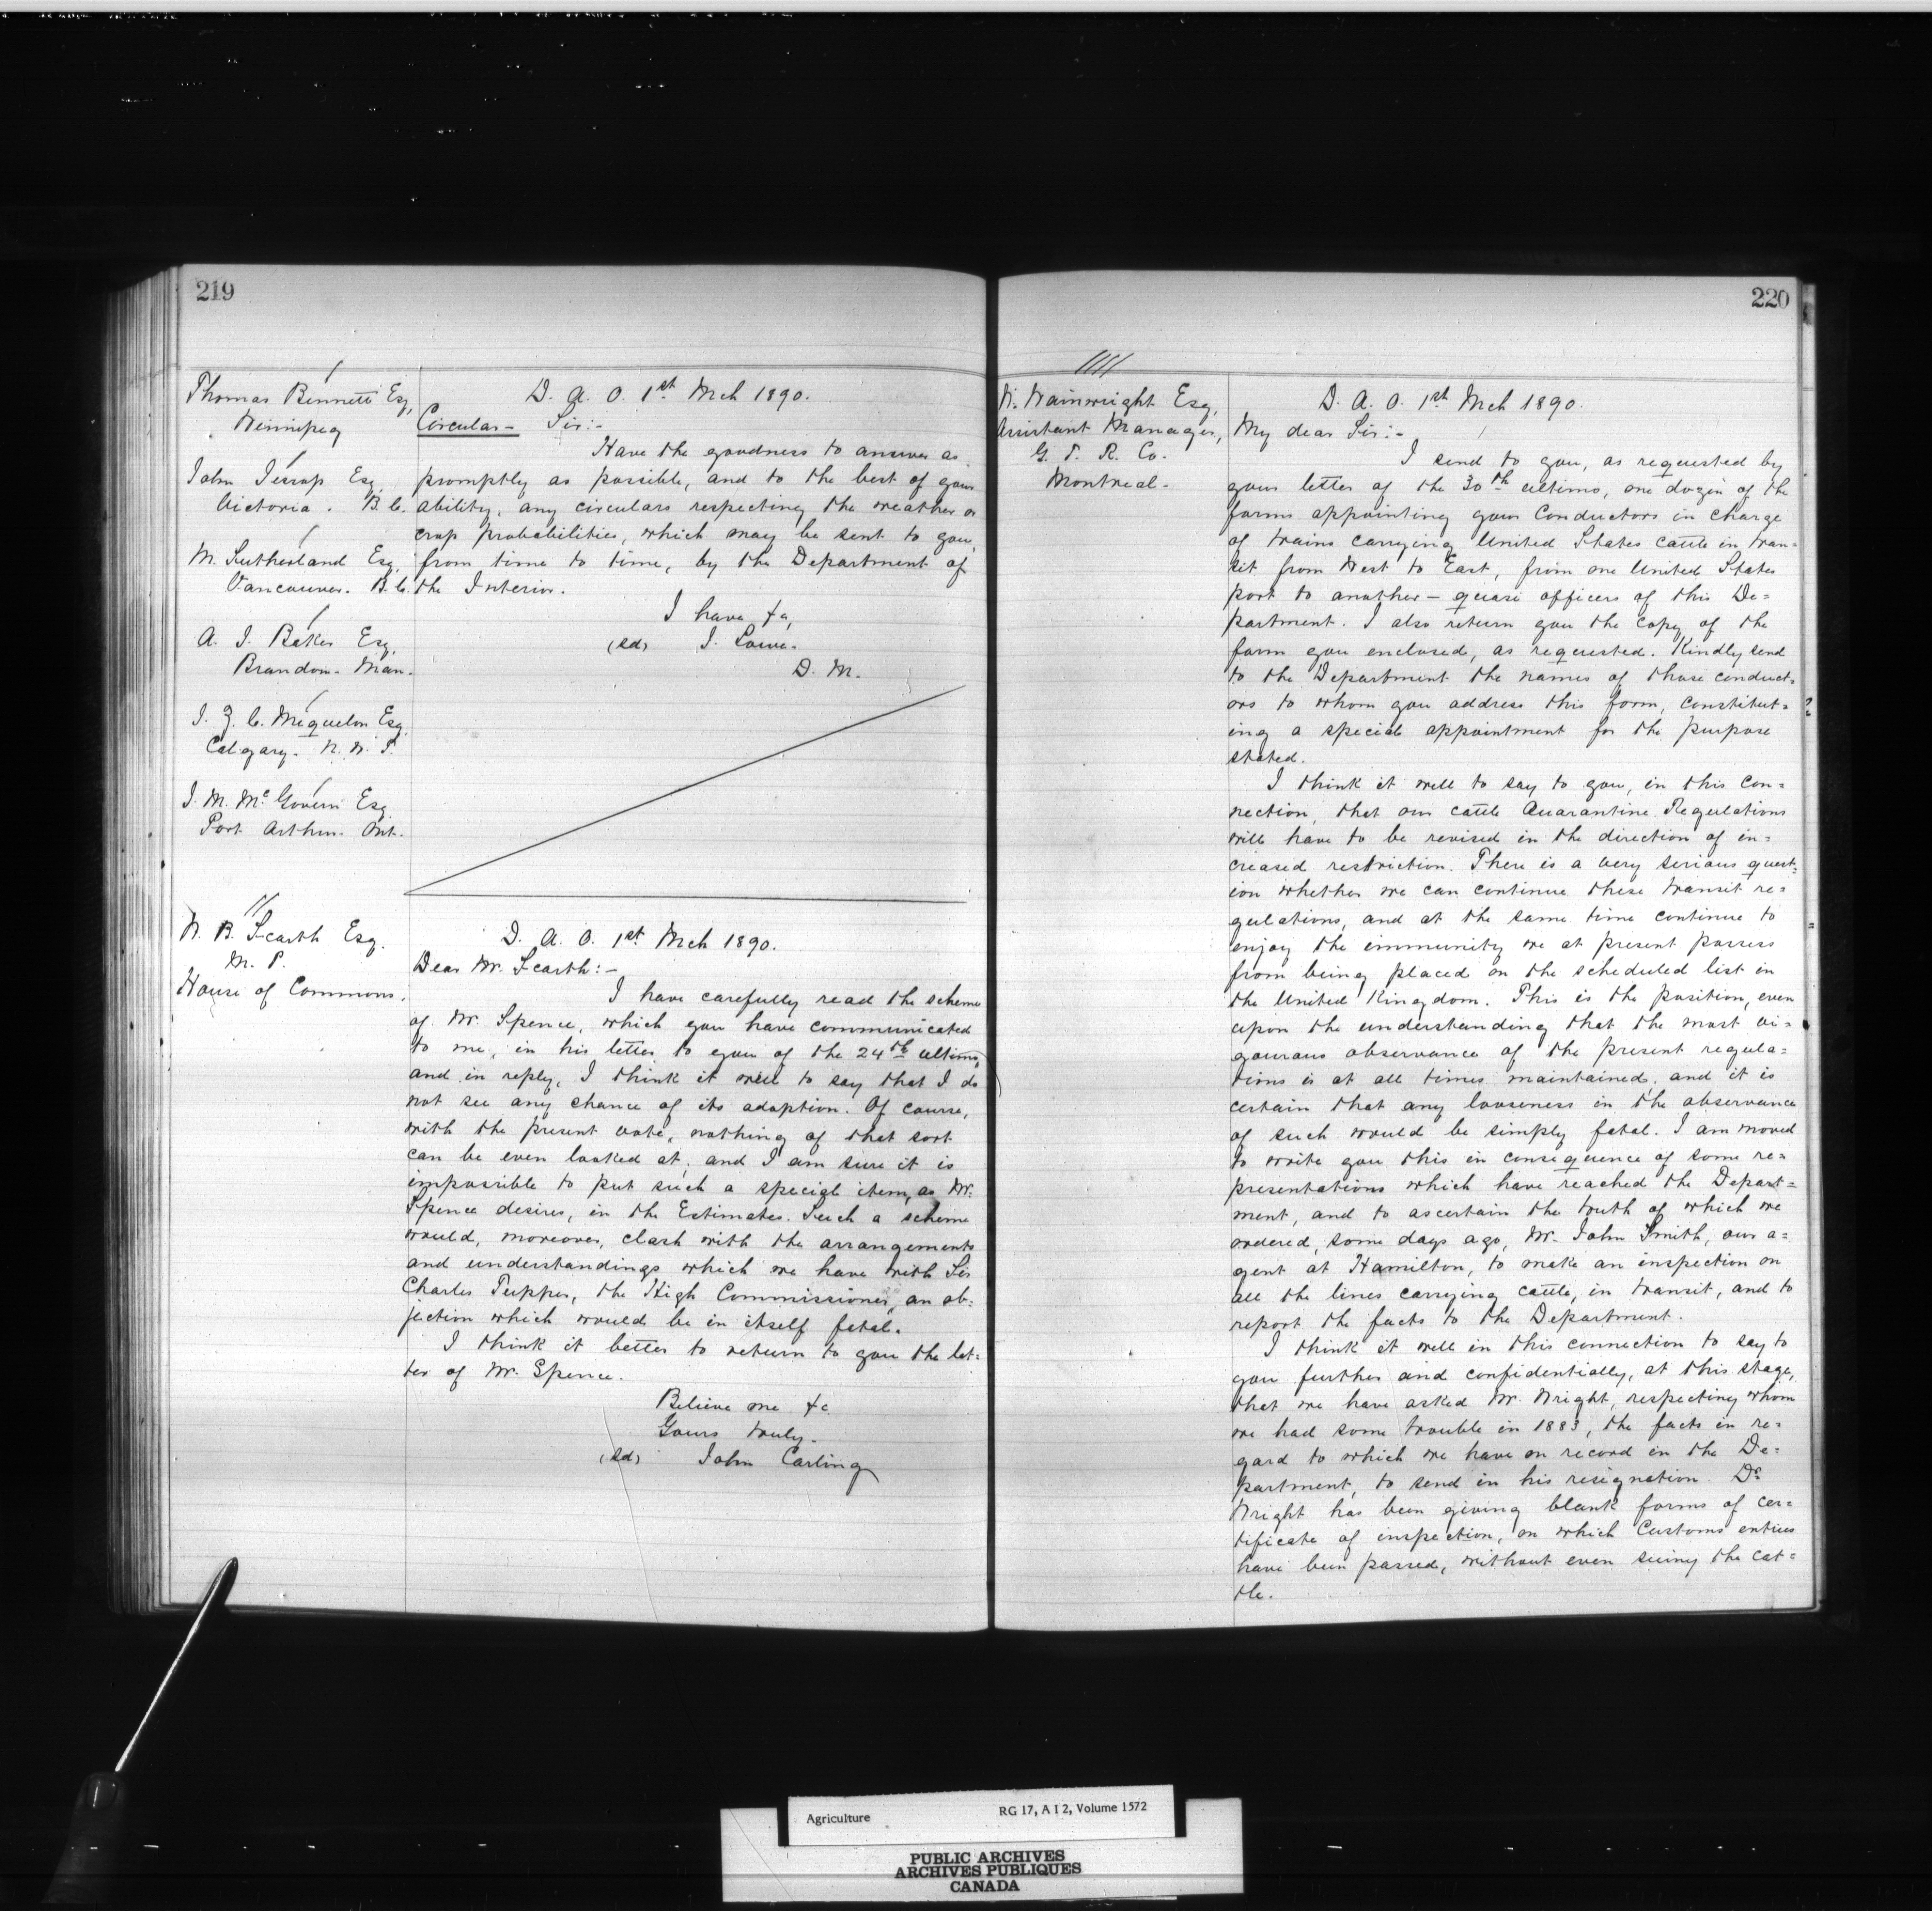 219
Thomas Bennett Esq,
Winnipeg
John Jessop Esq.
Victoria. B. C.
M. Sutherland Esq,
Vancouver. B. C.
A. J. Baker Esq,
Brandon. Man.
J. Z. C. Miquelon Esq,
Calgary. N. W. T.
J. M. McGovern Esq
Port Arthur. Ont.
D. A. O. 1st Mch 1890.
Circular- Sir:-
Have the goodness to answer as
promptly as possible, and to the best of your
ability, any circulars respecting the weather or
crop probabilities, which may be sent to you,
from time to time, by the Department of
the Interior.
I have &c,
(sd) J. Lowe.
D. M.
W. B. Scarth Esq.
M. P.
House of Commons.
D. A. O. 1st Mch 1890.
Dear Mr. Scarth:-
I have carefully read the scheme
of Mr. Spence, which you have communicated
to me, in his letter to you of the 24th ultimo,
and in reply, I think it well to say that I do
not see any chance of its adoption. Of course,
with the present vote, nothing of that sort
can be even looked at; and I am sure it is
impossible to put such a special item, as Mr.
Spence desires, in the Estimates. Such a scheme
would, moreover, clash with the arrangements
and understandings which we have with Sir
Charles Tupper, the High Commissioner, an ob=
jection which would be in itself fatal.
I think it better to return to you the let=
ter of Mr. Spence.
Believe me &c
Yours truly.
(sd) John Carling
220
W. Wainwright Esq,
Assistant Manager,
G. T. R. Co.
Montreal.
D. A. O. 1st Mch 1890.
My dear Sir:-
I send to you, as requested by
your letter of the 30th ultimo, one dozen of the
forms appointing your Conductors in charge
of trains carrying United States cattle in tran=
sit from West to East, from one United States
port to another - quasi officers of this De=
partment. I also return you the copy of the
form you enclosed, as requested. Kindly send
to the Department the names of those conduct=
ors to whom you address this form, constitut=
ing a special appointment for the purpose
stated.
I think it well to say to you, in this con=
nection, that our cattle Quarantine Regulations
will have to be revised in the direction of in=
creased restriction. There is a very serious quest=
ion whether we can continue these transit re=
gulations, and at the same time continue to
enjoy the immunity we at present possess
from being placed on the scheduled list in
the United Kingdom. This is the position, even
upon the understanding that the most vi=
gourous observance of the present regula=
tions is at all times maintained, and it is
certain that any looseness in the observance
of such would be simply fatal. I am moved
to write you this in consequence of some re=
presentations which have reached the Depart=
ment, and to ascertain the truth of which we
ordered, some days ago, Mr. John Smith, our a=
gent at Hamilton, to make an inspection on
all the lines carrying cattle, in transit, and to
report the facts to the Department.
I think it well in this connection to say to
you further and confidentially, at this stage,
that we have asked Mr. Wright, respecting whom
we had some trouble in 1883, the facts in re=
gard to which we have on record in the De=
partment, to send in his resignation. Dr
Wright has been giving blank forms of cer=
tificate of inspection, on which Customs entries
have been passed, without even seeing the cat=
tle.
Agriculture RG 17, A I 2, Volume 1572
PUBLIC ARCHIVES
ARCHIVES PUBLIQUES
CANADA